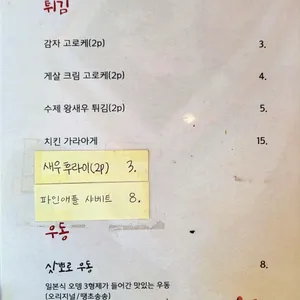 튀김
감자 고로케(2p) 3.
게살 크림 고로케(2p) 4.
수제 왕새우 튀김(2p) 5.
치킨 가라아게 15.
새우후라이(2p) 3.
파인애플 샤베트 8.
우동
삿뽀로 우동 8.
일본식 오뎅 3형제가 들어간 맛있는 우동
(오리지널/땡초송송)